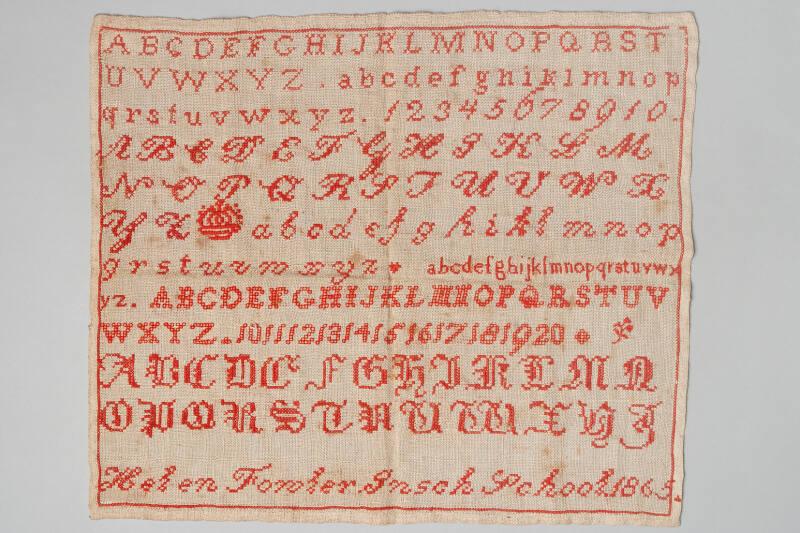 A B C D E F G H I J K L M N O P Q R S T
U V W X Y Z . a b c d e f g h i k l m n o p
q r s t u v w x y z . 1 2 3 4 5 6 7 8 9 1 0 .
A B C D E F G H I K L M
N O P Q R S T U V W X
Y Z a b c d e f g h i k l m n o p
q r s t u v w x y z abcdefghijklmnopqrstuvwx
yz. ABCDEFGHIJKLMNOPQRSTUV
WXYZ.1011121314151617181920
A B C D E F G H I K L M N
O P Q R S T U V W X Y Z
Helen Fowler.Insch School.1865.